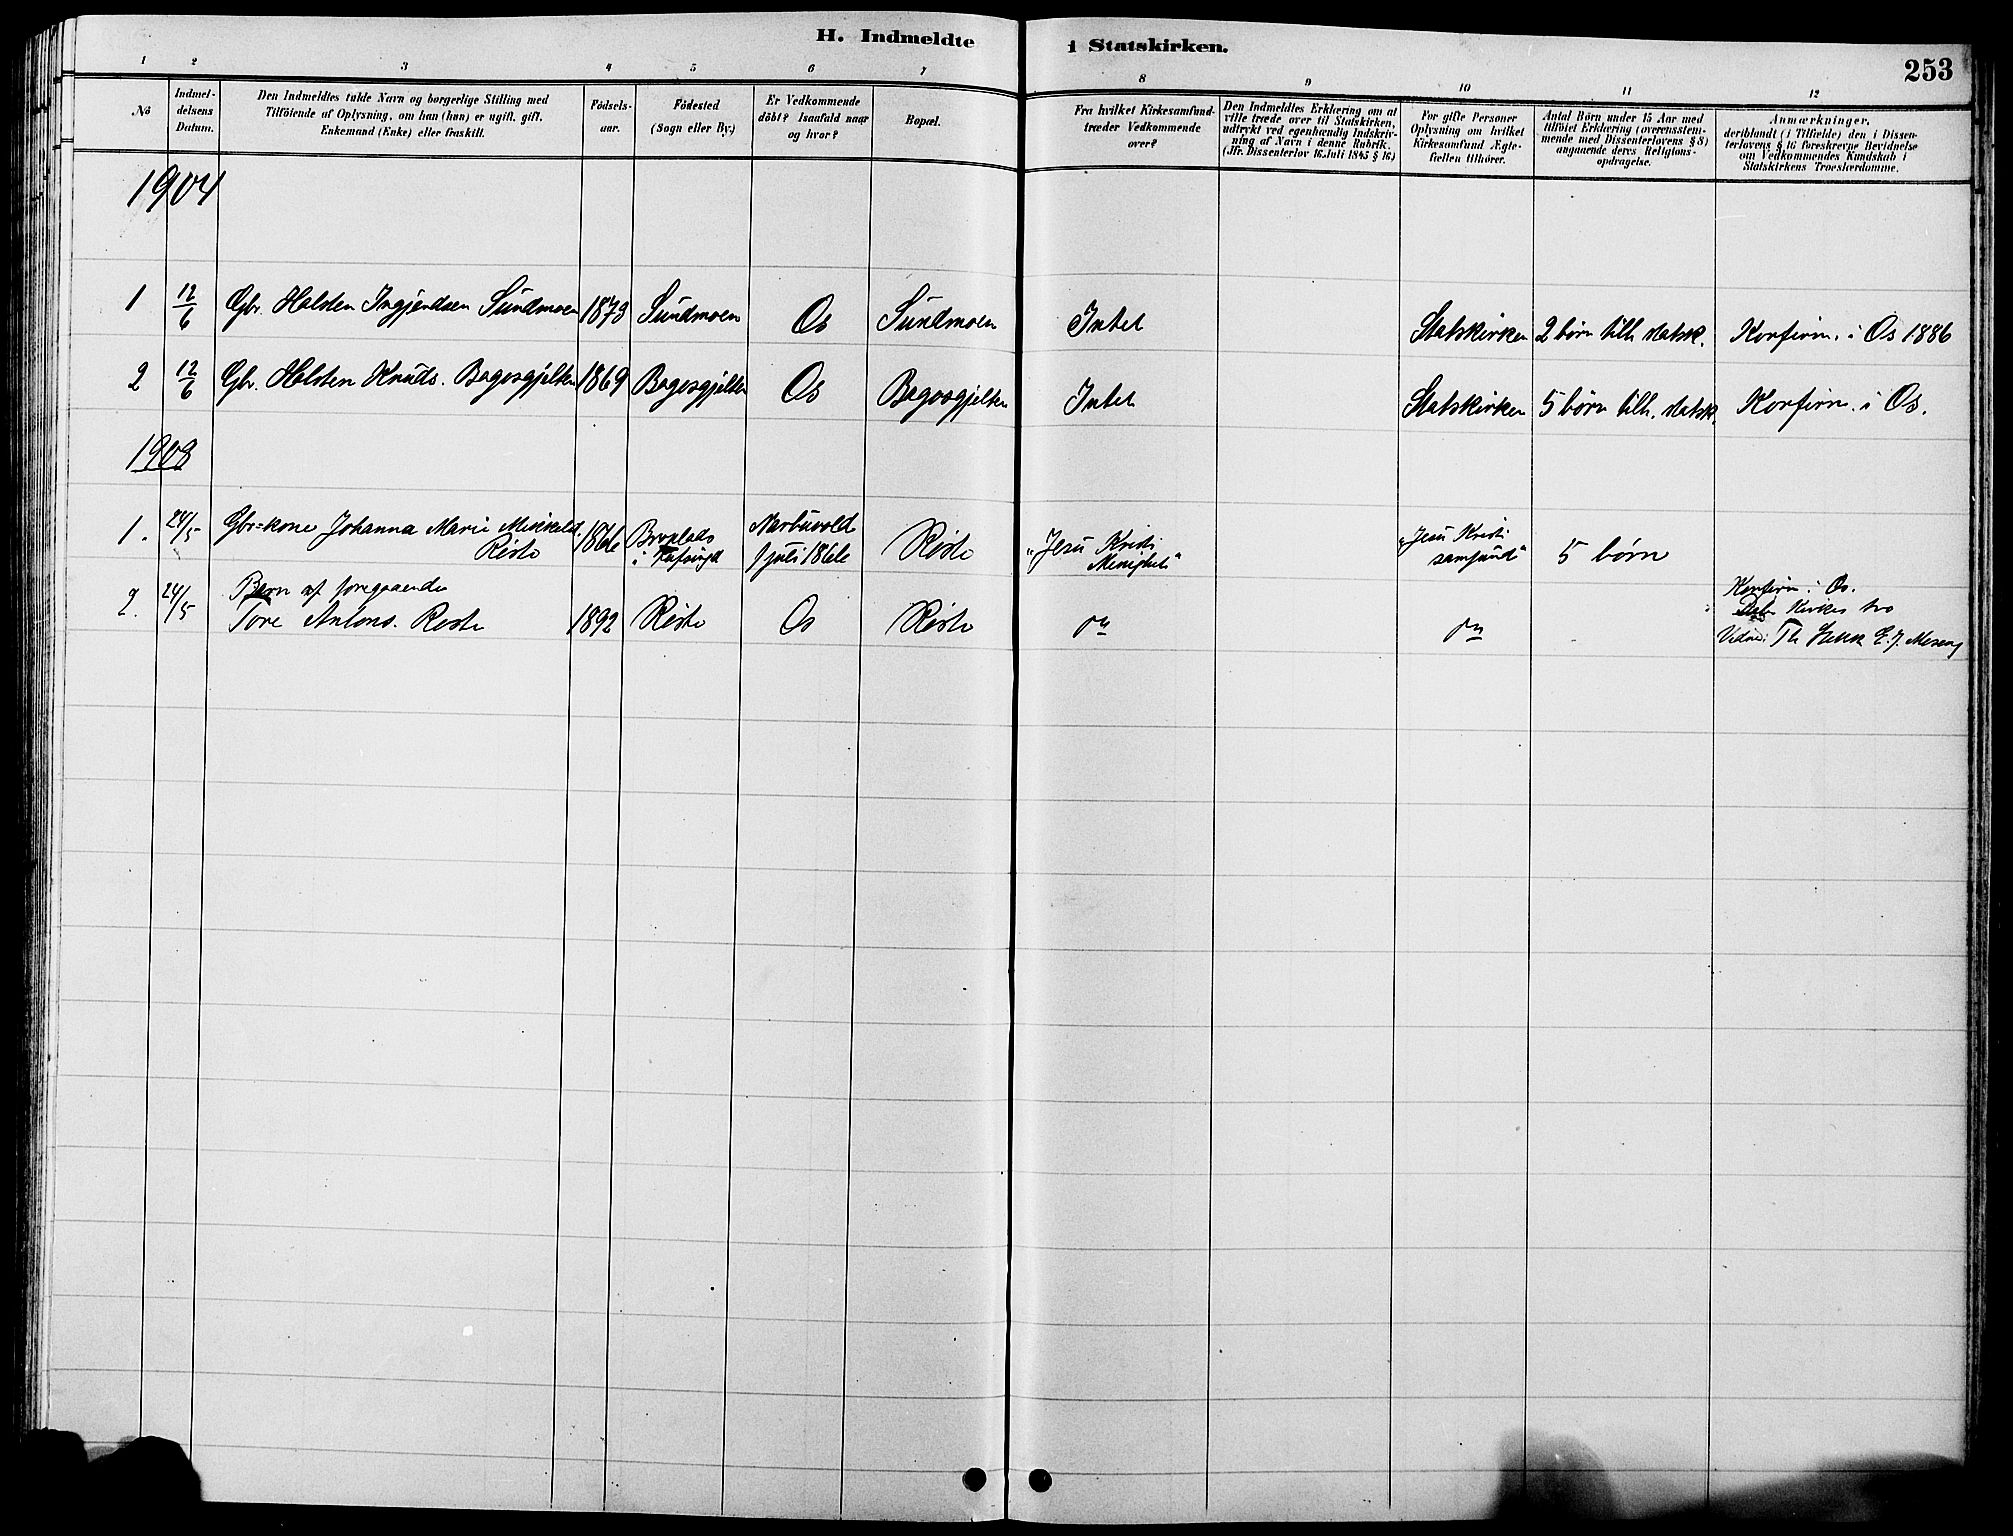 H. Indmeldte i Statskirken.
253
1 2 3 4 5 6 7 8 9 10 11 12
No
Indmel-
delsens
Datum.
Den Indmeldtes fulde Navn og borgerlige Stilling med
Tilföiende af Oplysning, om han (hun) er ugift, gift,
Enkemand (Enke) eller fraskilt.
Födsels-
aar.
Födested
(Sogn eller By.)
Er Vedkommende
döbt? Isaafald naar
og hvor?
Bopæl.
Fra hvilket Kirkesamfund
træder Vedkommende
over?
Den Indmeldtes Erklæring om at
ville træde over til Statskirken,
udtrykt ved egenhændig Indskriv-
ning af Navn i denne Rubrik.
(Jfr. Dissenterlov 16. Juli 1845 § 16.)
For gifte Personer
Oplysning om hvilket
Kirkesamfund Ægte-
fællen tilhører.
Antal Börn under 15 Aar med
tilföiet Erklæring (overensstem-
mende med Dissenterlovens § 8)
angaaende deres Religions-
opdragelse.
Anmærkninger,
deriblandt (i Tilfælde) den i Dissen-
terlovens § 16 foreskrevne Bevidnelse
om Vedkommendes Kundskab i
Statskirkens Troeslærdomme.
1904
1 12/6 Gbr. Halsten Ingjendsen Sundmoen 1873 Sundmoen Os Sundmoen Intet Statskirken 2 børn tilh. statsk. Konfirm. i Os 1886
2 12/6 Gbr. Halsten Knuds. Bagosgjelten 1869 Bagosgjelten Os Bagosgjelten Intet Statskirken 5 børn tilh. statsk. Konfirm. i Os.
1908
1. 24/5 Gbr=kone Johanna Marie Mikkelsd. 1866 Narbuvold "Jesu Kristi "Jesu Kristi
Røste i 1 juli 1866 Røste Menighet" samfund" 5 børn
Barn af foregaaende Konfirm. i Os.
2. 24/5 Tore Antons. Røste 1892 Røste Os Røste do do Kirkes tro
Vidne: Th